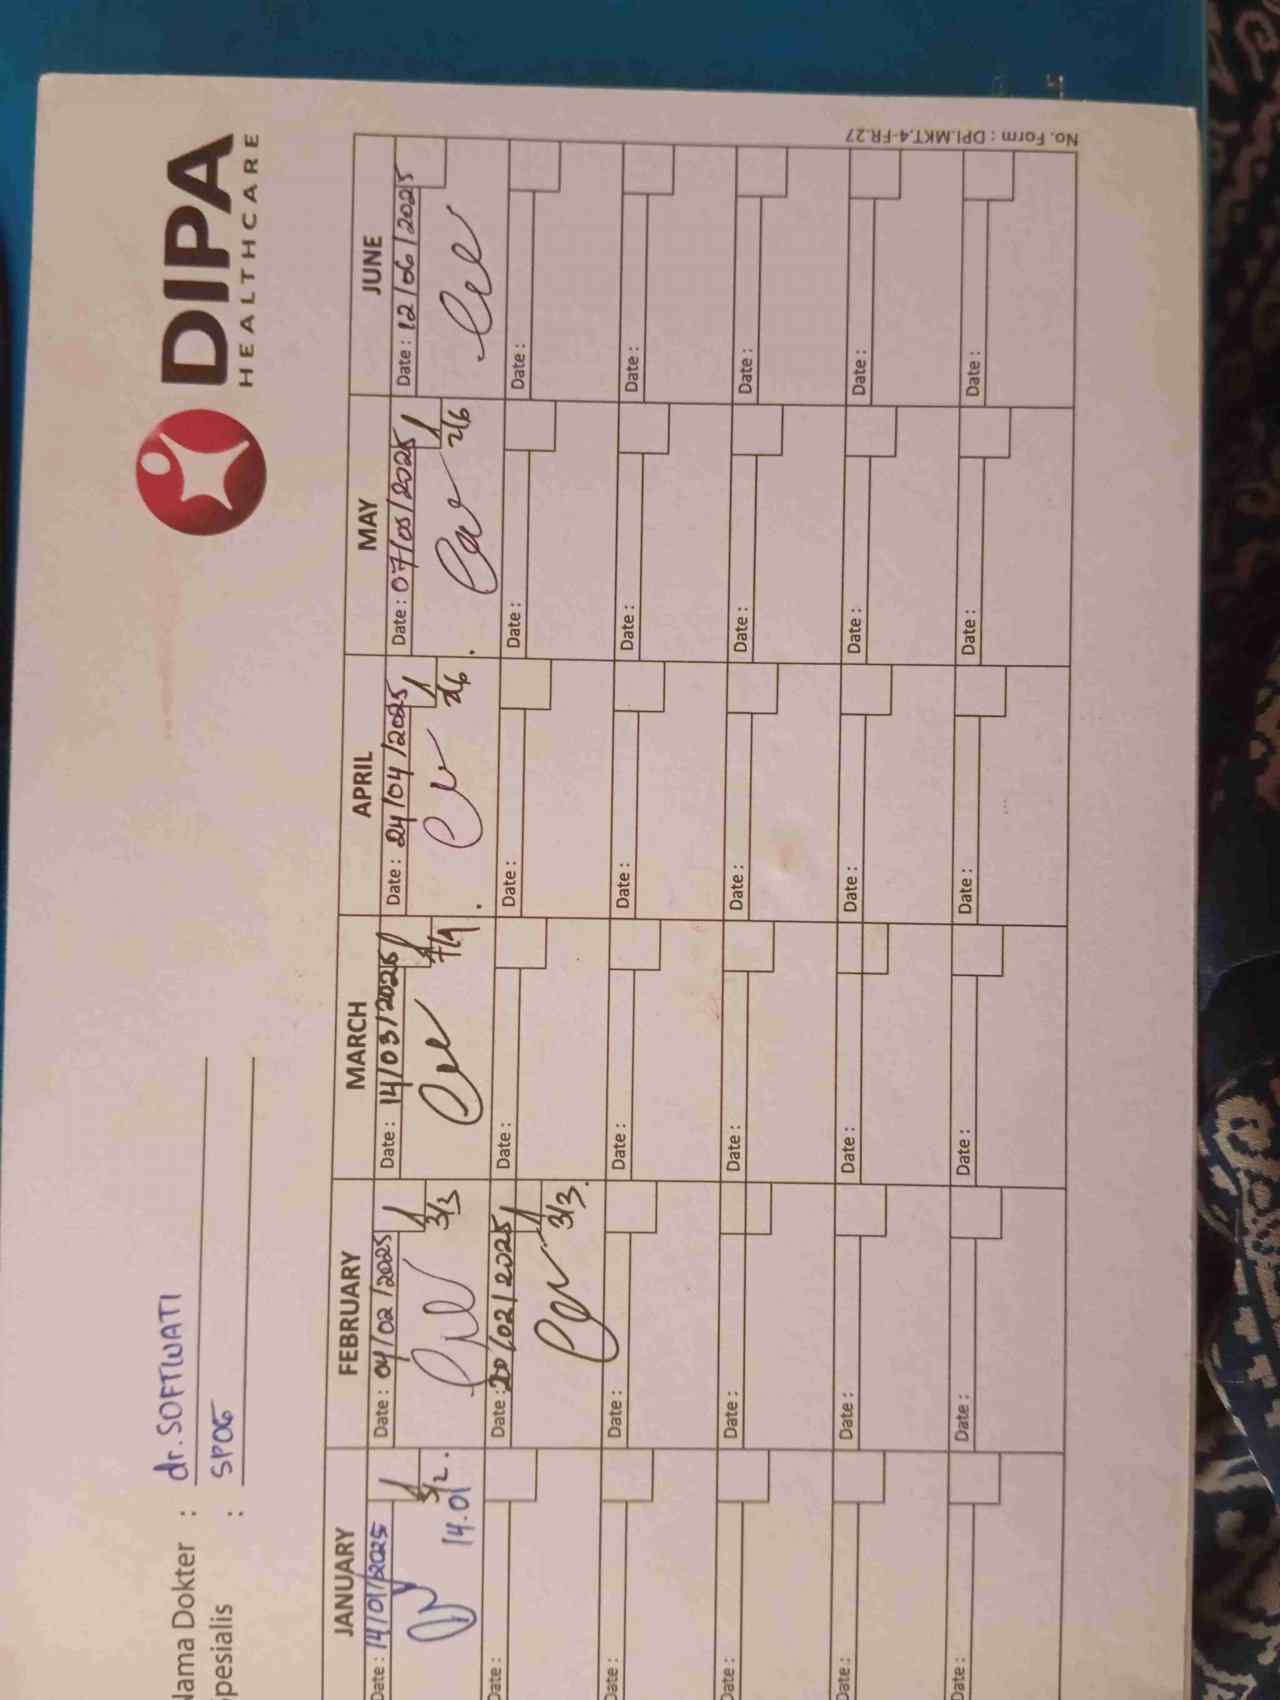 DIPA
HEALTHCARE
Nama Dokter : dr. SOFTWATI
Spesialis : SPOG
JANUARY FEBRUARY MARCH APRIL MAY JUNE
Date : 14/01/2025 Date : 04/02/2025 Date : 14/03/2025 Date : 24/04/2025 Date : 07/05/2025 Date : 12/06/2025
5/2. 3/3 7/4 2/6 2/6
14.01
Date : Date : 20/02/2025 Date : Date : Date : Date :
3/3.
Date : Date : Date : Date : Date : Date :
Date : Date : Date : Date : Date : Date :
Date : Date : Date : Date : Date : Date :
Date : Date : Date : Date : Date : Date :
No. Form : DPI.MKT.4-FR.27